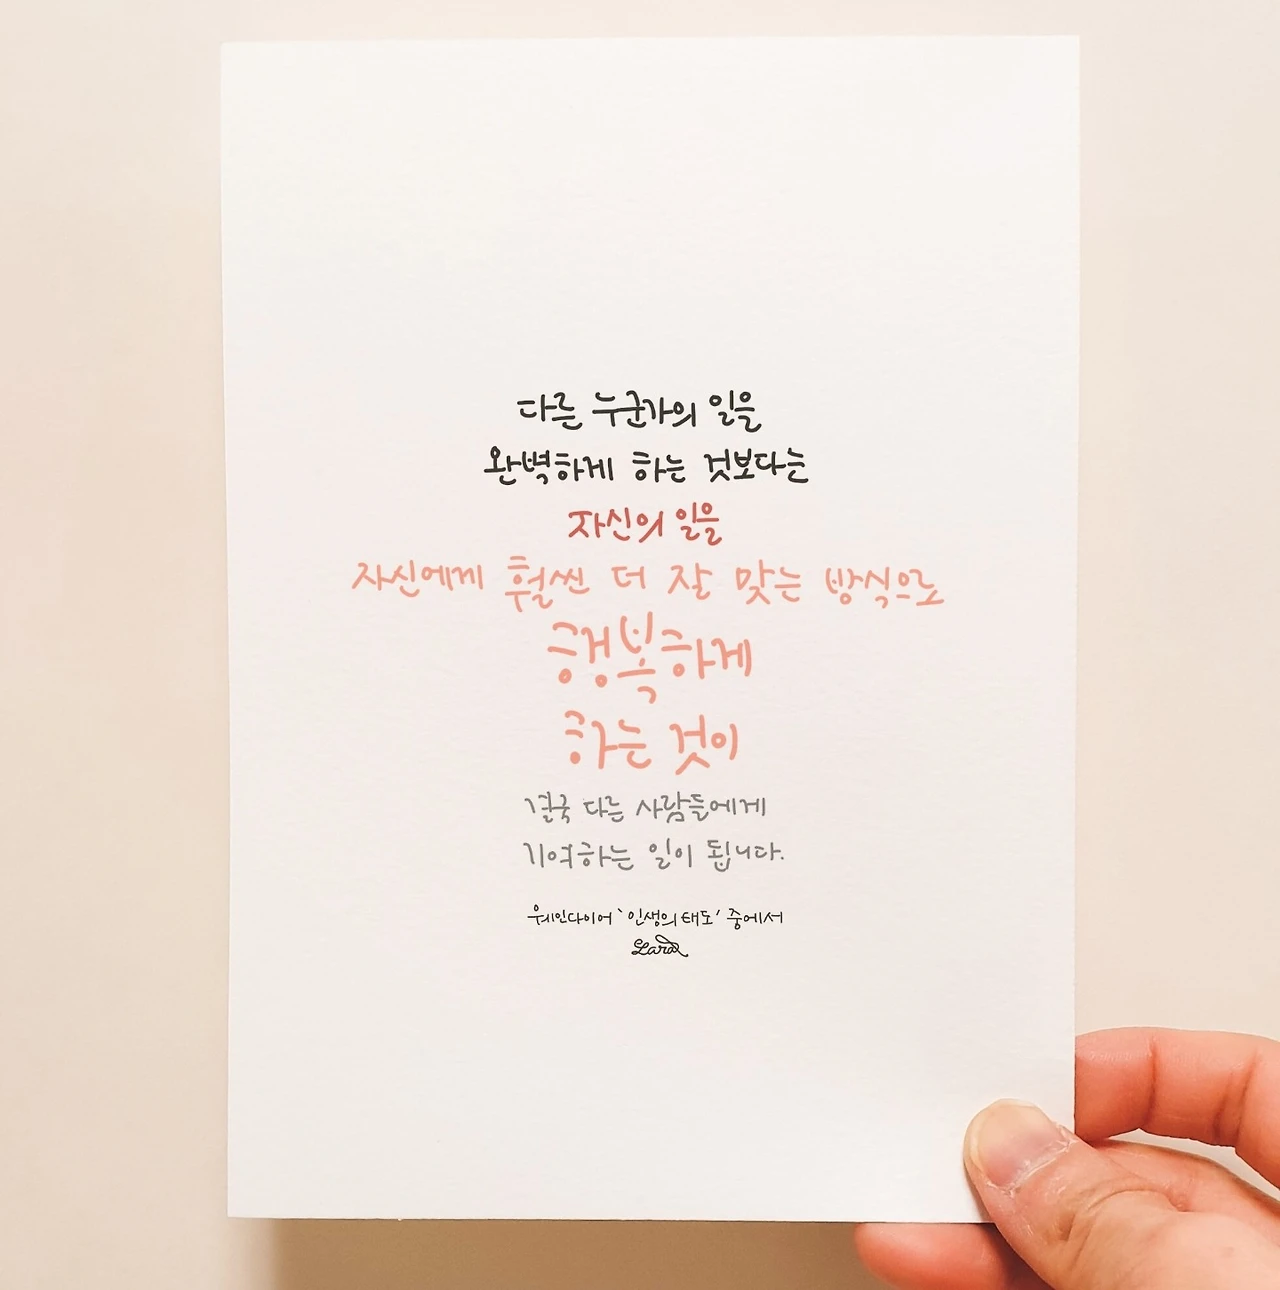 다른 누군가의 일을
완벽하게 하는 것보다는
자신의 일을
자신에게 훨씬 더 잘 맞는 방식으로
행복하게
하는 것이
결국 다른 사람들에게
기여하는 일이 됩니다.
웨인다이어 '인생의 태도' 중에서
Lara